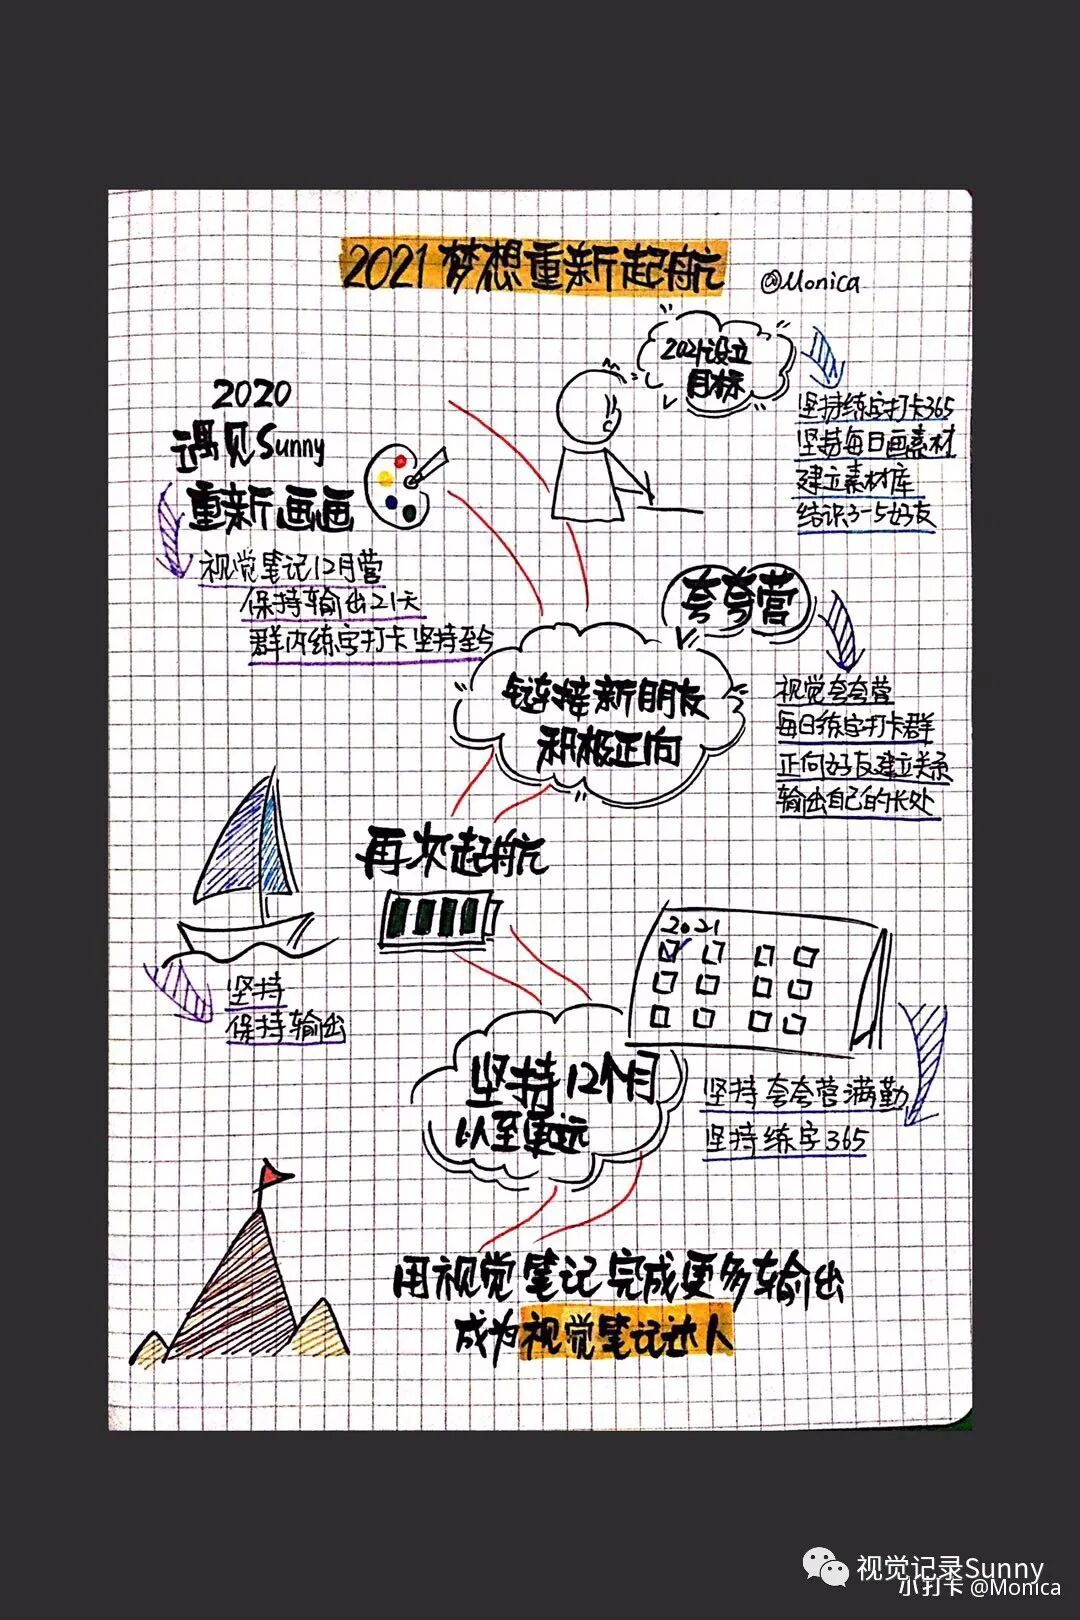 2021 梦想重新起航
@Monica
2021设立
目标
坚持练字打卡365
坚持每日画素材
建立素材库
结识3-5好友
2020
遇见Sunny
重新画画
视觉笔记12月营
保持输出21天
群内练字打卡 坚持至今
夸夸营
链接新朋友
积极正向
视觉夸夸营
每日练字打卡群
正向好友建立关系
输出自己的长处
再次起航
坚持
保持输出
2021
坚持12个月
以至更远
坚持夸夸营满勤
坚持练字365
用视觉笔记完成更多输出
成为视觉笔记达人
视觉记录Sunny
小打卡 @Monica